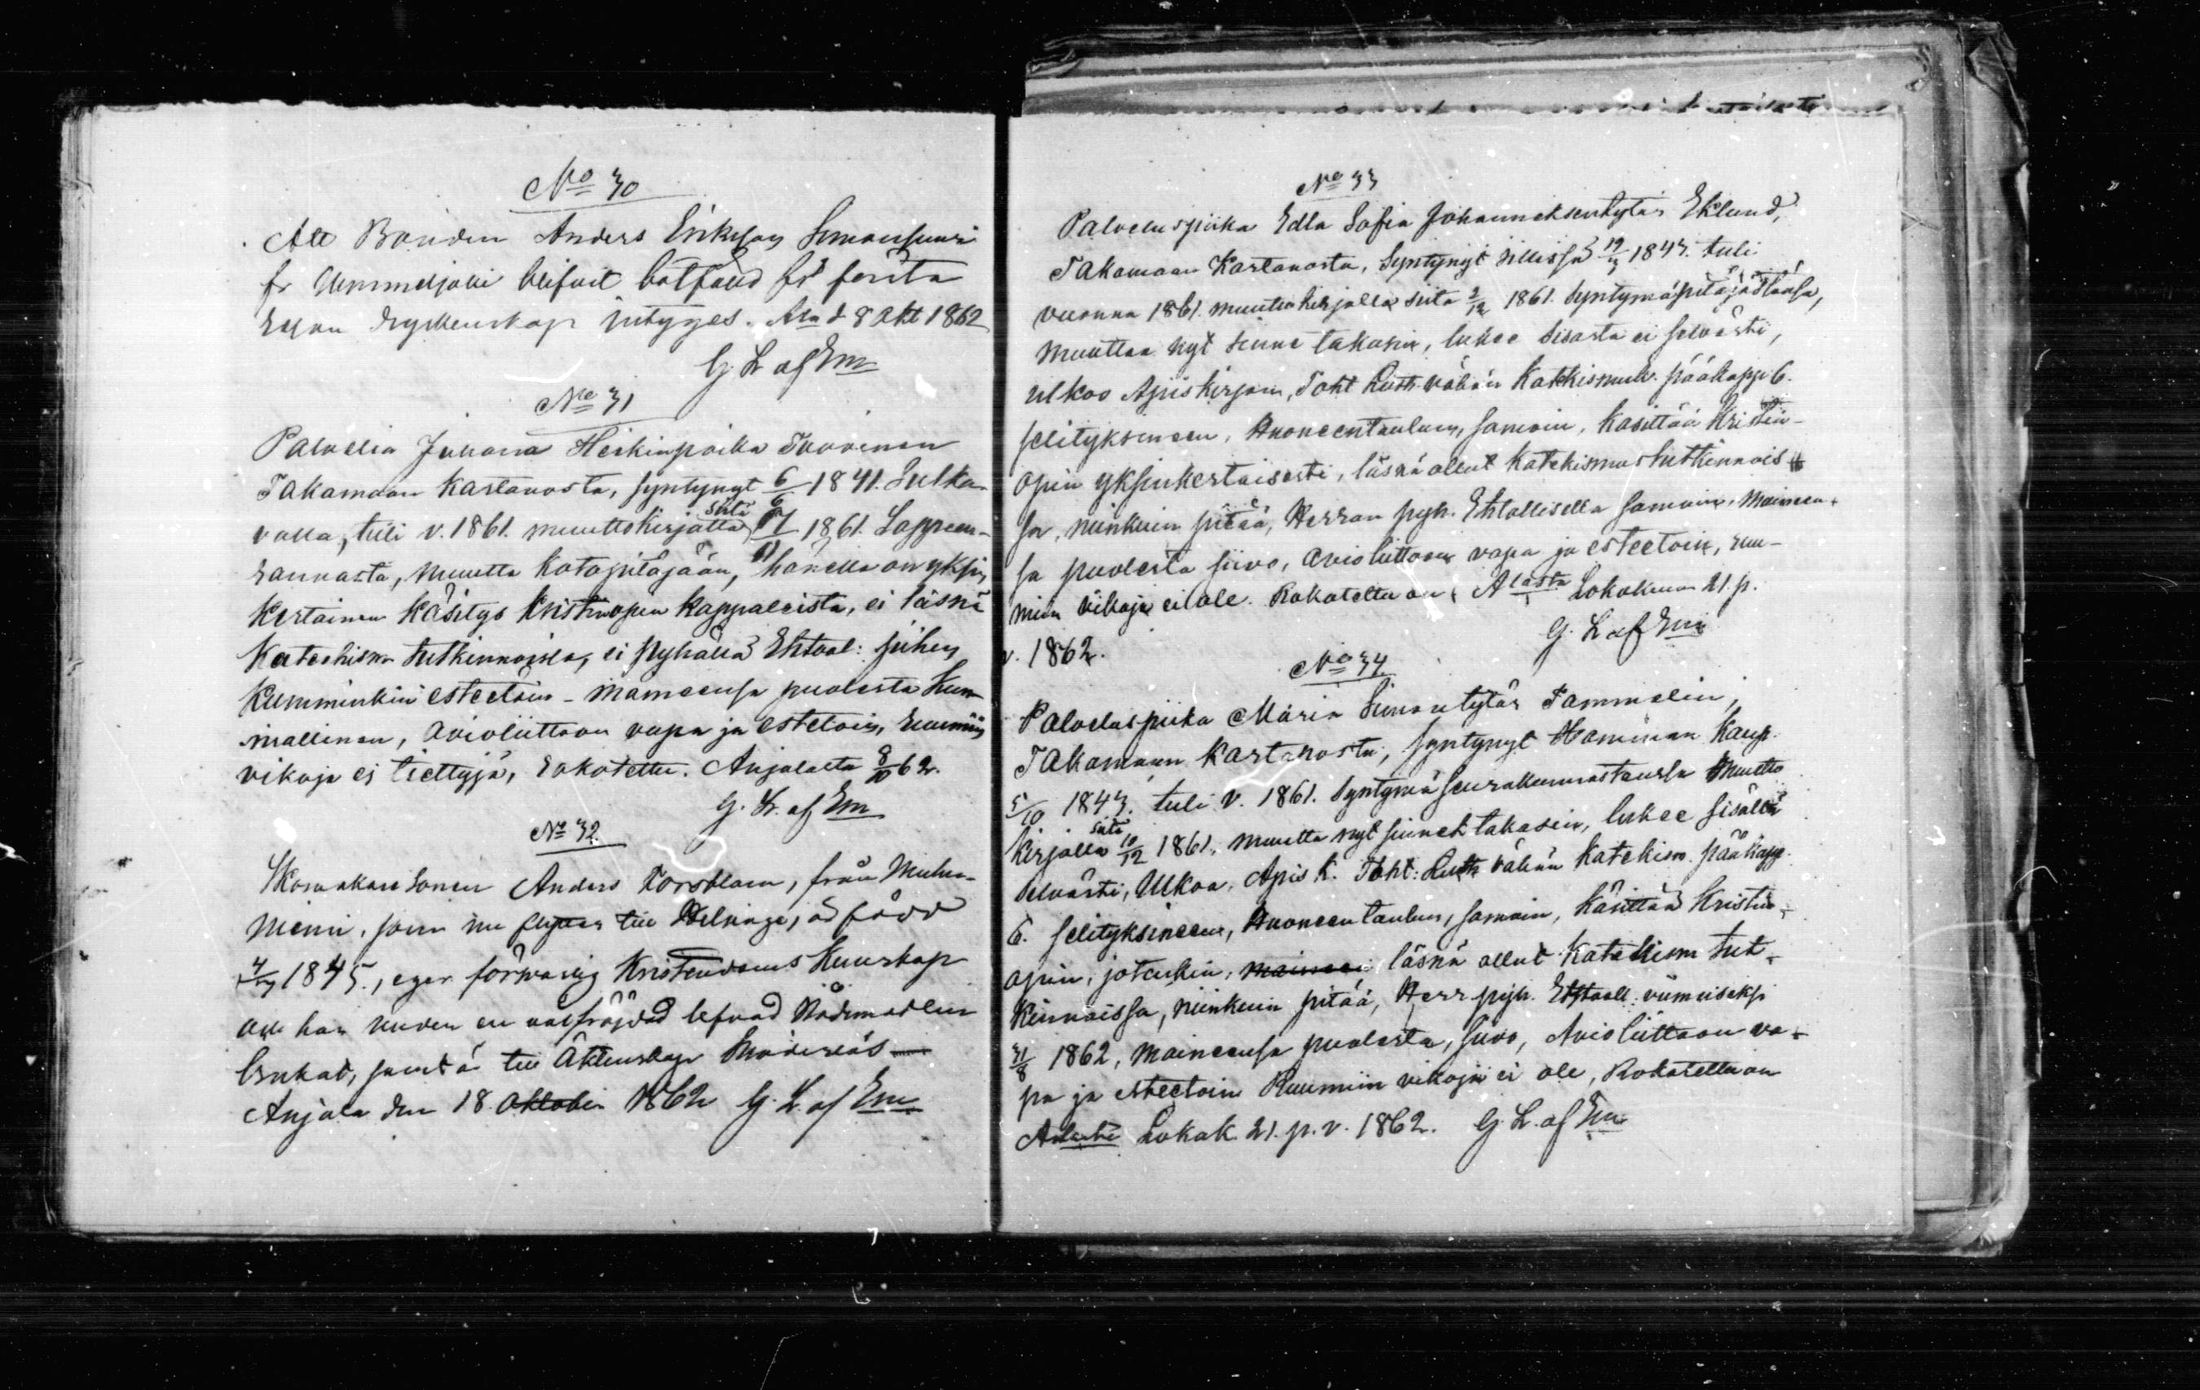 No 30
Att Bonden Anders Eriksson Simonsuuri
fr Ummeljoki blifvit botfälld för första
Resan fyllerskap intygas. Ala d 8 Okt 1862
G. L. af Em
No 31
Palvelia Juhana Heikinpoika Tuovinen
Takamaan Kartanosta, syntynyt 6/6 1841. Sulka-
valla, tuli v. 1861. muuttokirjalla siitä 1861. Lappeen-
rannasta, muutta pitäjään, hänellä on yksin-
kertainen käsitys kristinopin kappaleista, ei läsnä
Katechism tutkinnoissa, ei pyhällä Ehtool: siihen
kumminkin esteetöin - maineensa puolesta kun-
niallinen, avioliittoon vapa ja estetoin, Ruumiin
vikoja ei tiettyjä, rokotettu. Anjalasta 8/10 62.
G. L. af Em
No 32.
Skomakare Sonen Anders Forsblom, från Muhn-
niemi, som nu flyttar till Helsinge, är född
1845., eger försvarlig Kristendoms kunskap
och har under en välfräjdad lefnad Nådemedlen
brukat, samt är till Äktenskap hinderlös —
Anjala den 18 Oktober 1862 G. L. af Em
No 33
Palveluspiika Edla Sofia Johanneksentytär Eklund,
Takamaan Kartanosta, Syntynyt 19/3 1843. tuli
vuonna 1861. muuttokirjalla siitä 2/12 1861. Syntymäpitäjästänsä,
muuttaa nyt sinne takasin, lukee sisarta ei selvästi,
ulkoo Apiskirjan, Toht Luth. vähän Katkismuk. pääkapp 6.
selityksineen, Huoneentaulun, samoin, käsittää Kristin-
opin yksinkertaisesti, läsnä ollut katekismustutkinnois
sa, niinkuin pitää, Herran pyh. Ehtollisella samoin, Maineen-
sa puolesta siivo, avioliittoon vapa ja esteetoin, ruu-
miin vikoja ei ole. Rokotettu on. Alasta Lokakuun 21. p.
v. 1862.
G. L. af Em
No 34.
Palveluspiika Maria Simontytär Tammelin,
Takamaan Kartanosta, syntynyt Haminan Kaup.
5/10 1843. tuli v. 1861. Syntymäseurakunnastansa muutto
kirjalla siitä 10/12 1861, muutta nyt sinne takasin, lukee sisältä
selvästi, Ulkoa, Apis k. Toht: Luth vähän Katekism. pääkapp.
6. selityksineen, Huoneentaulun, samoin, käsittää Kristin-
opin, jotenkin, läsnä ollut Katekism tut-
kinnoissa, niinkuin pitää, Herr pyh. Ehtooll: viimiseksi
31/8 1862, maineensa puolesta, siivo, Avioliittoon va-
pa ja esteetoin Ruumiin vikoja ei ole, Rokotettu on
Alasta Lokak 21. p. v. 1862. G. L. af Em